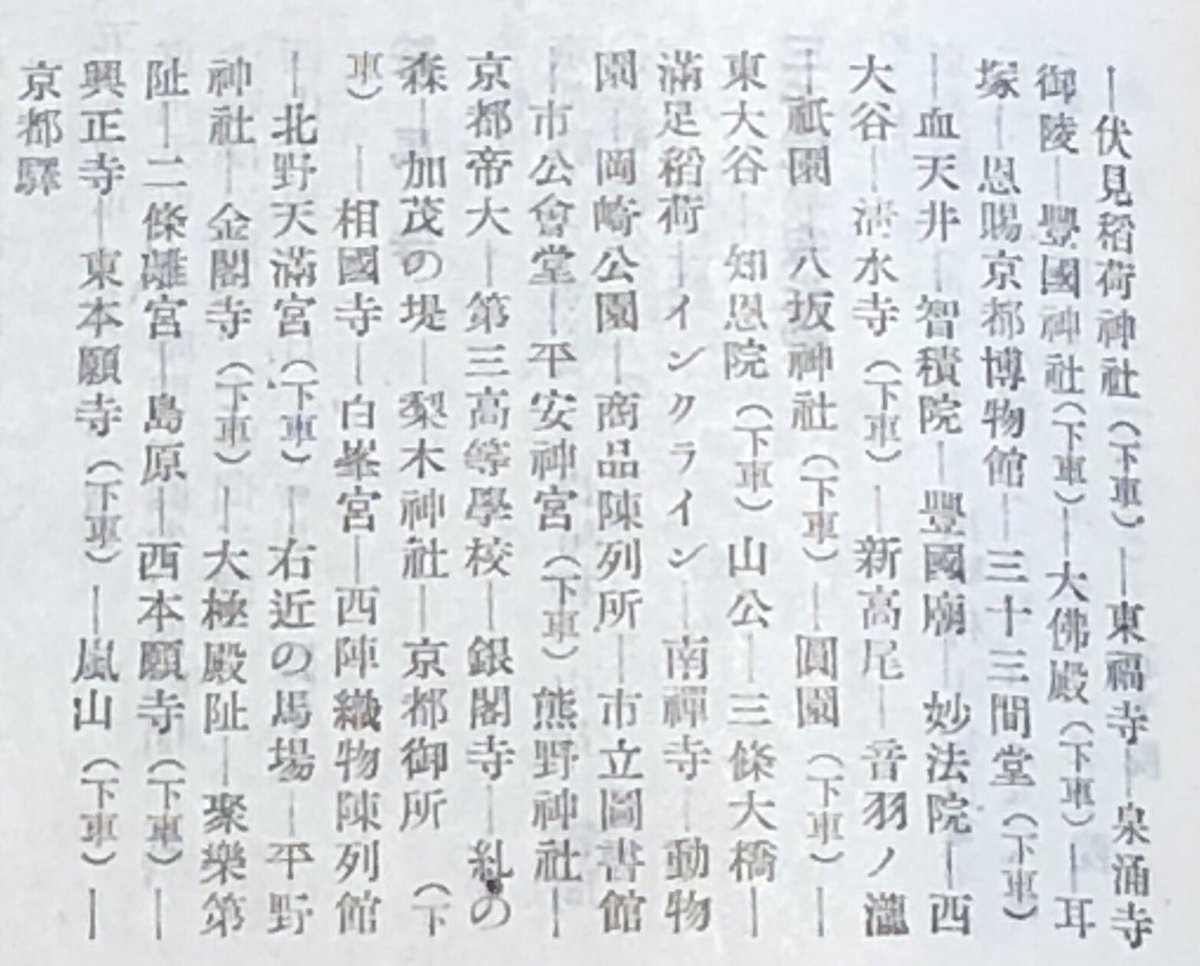 —伏見稻荷神社（下車）—東福寺—泉涌寺
御陵—豐國神社（下車）—大佛殿（下車）—耳
塚—恩賜京都博物館—三十三間堂（下車）
—血天井—智積院—豐國廟—妙法院—西
大谷—淸水寺（下車）—新高尾—音羽ノ瀧
—祇園—八坂神社（下車）—圓園（下車）—
東大谷—知恩院（下車）山公—三條大橋—
滿足稻荷—インクライン—南禪寺—動物
園—岡崎公園—商品陳列所—市立圖書館
—市公會堂—平安神宮（下車）熊野神社—
京都帝大—第三高等學校—銀閣寺—糺の
森—加茂の堤—梨木神社—京都御所（下
車）—相國寺—白峯宮—西陣織物陳列館
—北野天滿宮（下車）—右近の馬場—平野
神社—金閣寺（下車）—大極殿阯—聚樂第
阯—二條離宮—島原—西本願寺（下車）—
興正寺—東本願寺（下車）—嵐山（下車）—
京都驛